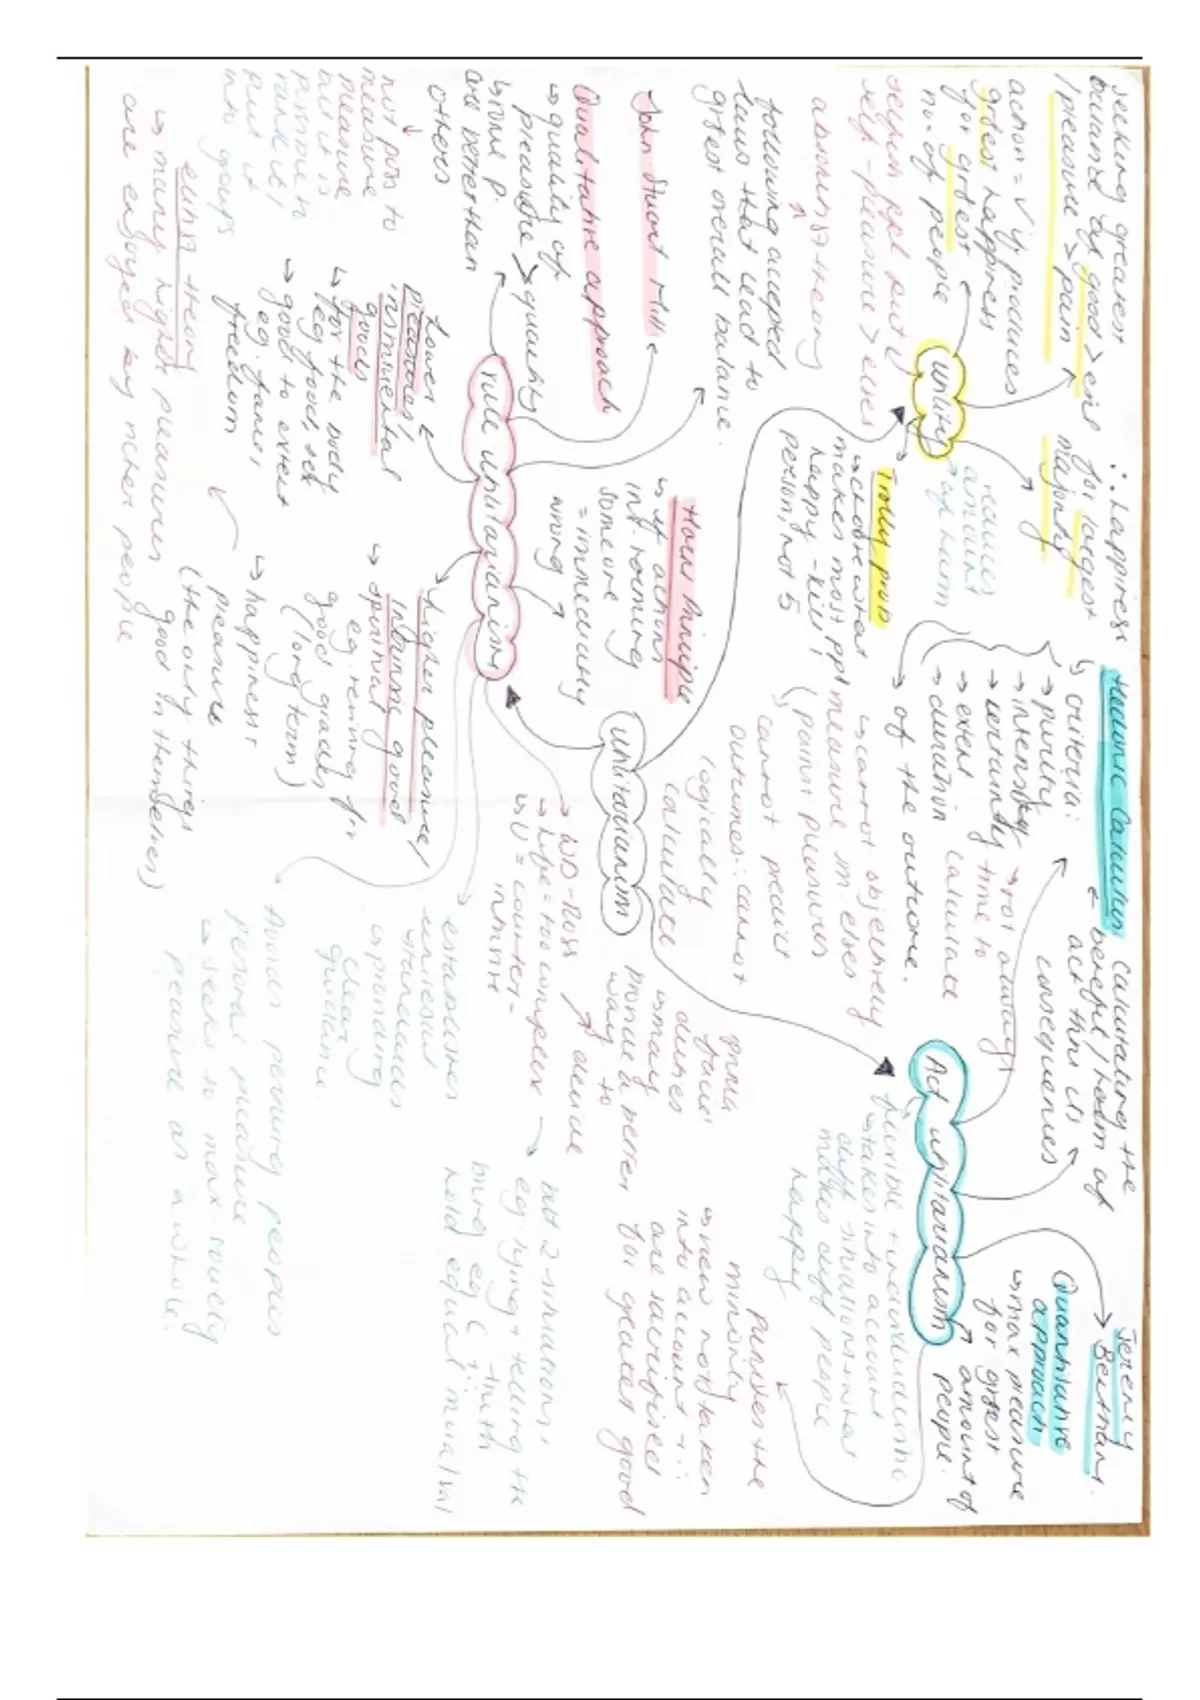 seeking greatest
balance of good > evil
/pleasure > pain
∴ happiness
for largest
majority
action = ✓ if produces
grtest happness
for grtest
no. of people
utility
reduces
amount
of harm
self-pleasure > elves
absolutist theory
following accepted
laws that lead to
grtest overall balance.
Trolly prob
↳ choose what
makes most ppl
happy - kill 1
person, not 5
Hedonic Calculus
↳ criteria:
→ purity
→ intensity
→ certainty
→ extent
→ duration
→ of the outcome.
→ not always
time to
calculate
calculating the
benefit/harm of
act thru its
consequences
Jeremy
Bentham.
Quantitative
approach
↳ max pleasure
for grtest
amount of
people.
Act utilitarianism
flexible + individualistic
↳ takes into account
diff situations + what
makes diff people
happy
↳ cannot objectively
measure sm. elses
(pain/pleasures
↳ cannot predict
outcomes ∴ cannot
logically
calculate
punishes the
minority
↳ view not taken
into account + ∴
are sacrificed
for greater good
utilitarianism
John Stuart Mill
Qualitative approach
↳ quality of
pleasure > quantity
↳ some p.
are better than
others
not poss to
measure
pleasure
but it is
possible to
rank it/
put it
into groups
rule utilitarianism
Harm Principle
↳ if action
int. harming
someone
= immediately
wrong
Lower
pleasures/
instrumental
goods
↳ for the body
(eg food, sex
→ good to extent
eg. fame,
freedom
higher pleasures/
Intrinsic good
↳ spiritual,
eg. revising for
good grades
(long term)
↳ happiness
pleasure
(the only things
good in themselves)
elitist theory
↳ many higher pleasures
are enjoyed by richer people
WD-Ross
↳ Life = too complex
↳ U = counter-
intuitive
prima
facie
duties
↳ many
devise
a better
way to
but 2 situations,
eg. lying + telling the
truth
establishes
universal
standards
↳ providing
clear
guidance.
Avoids pursuing peoples
personal pleasure
↳ seeks to max. society
pleasure as a whole.